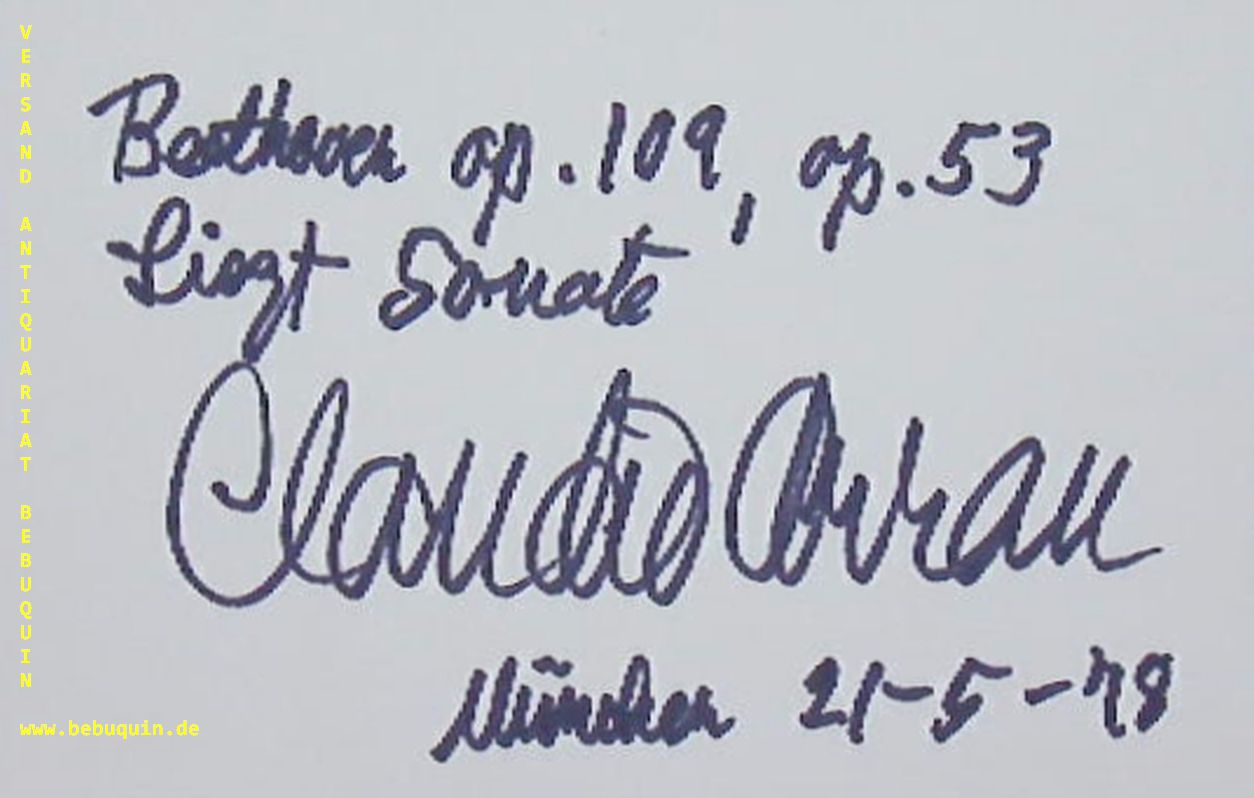 Beethoven op.109, op.53
Liszt Sonate
Claudio Arrau
München 21-5-78
VERSAND ANTIQUARIAT BEBUQUIN
www.bebuquin.de